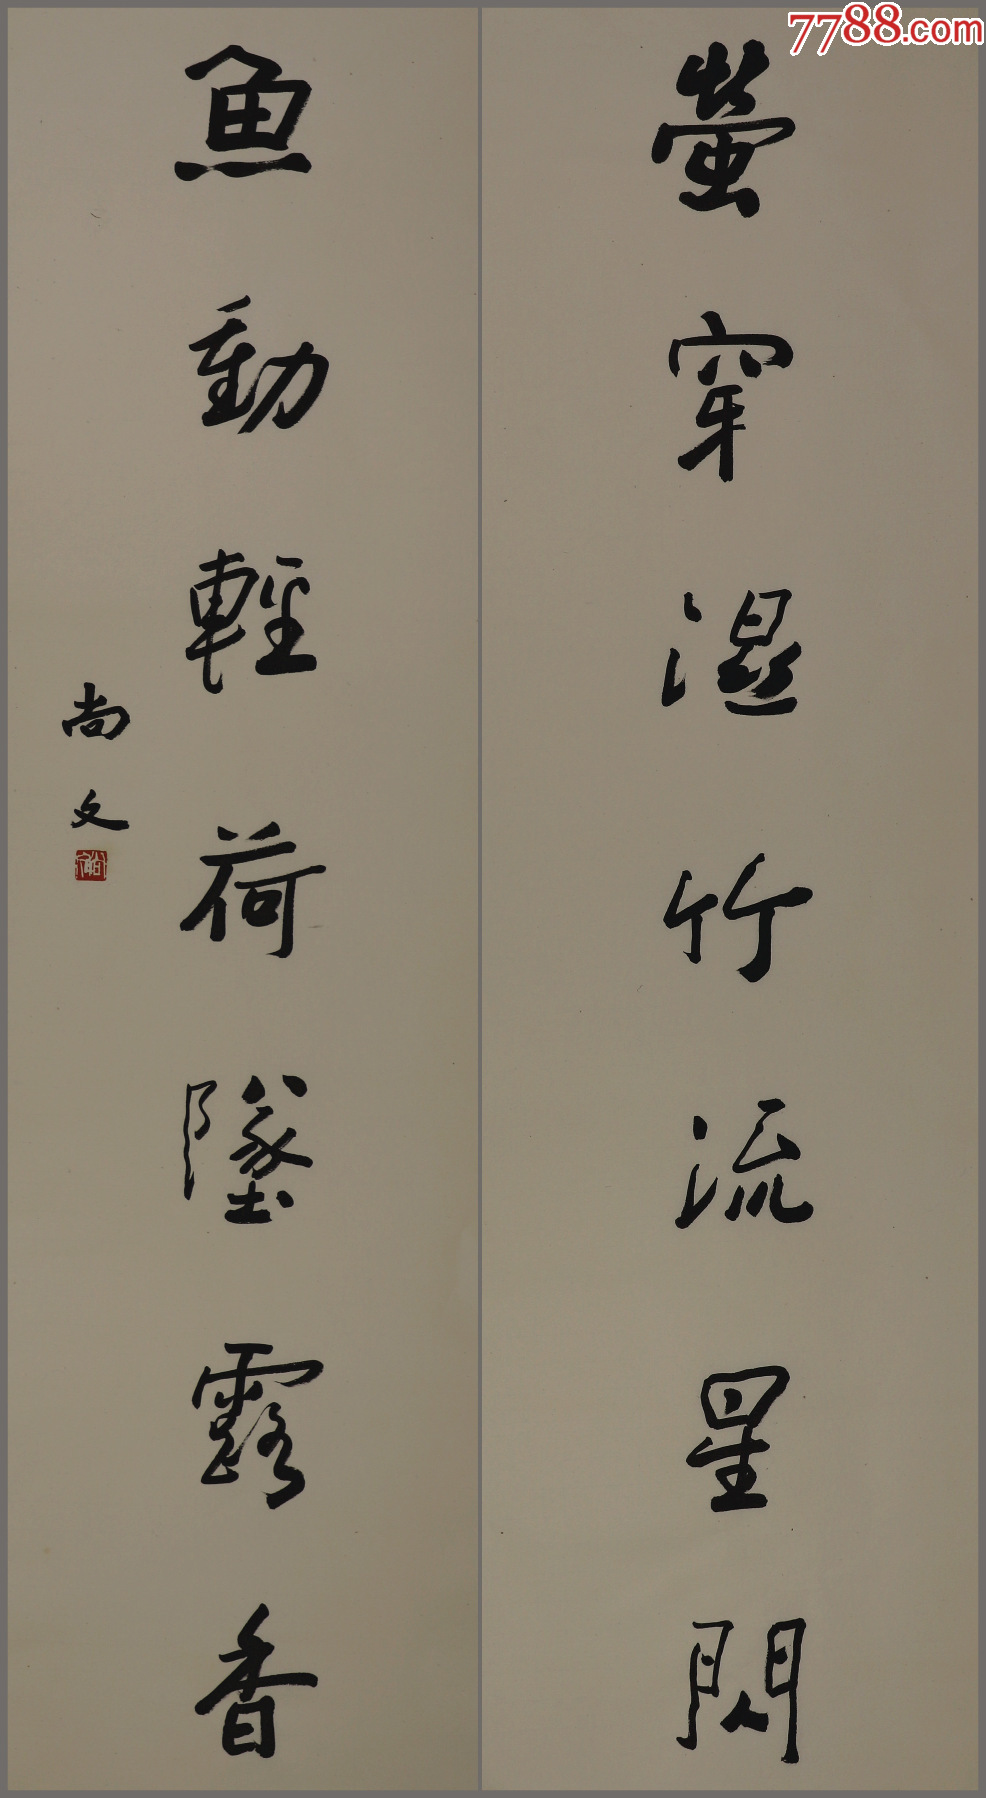 7788.com
螢穿濕竹流星閃
魚動輕荷墜露香
尚文